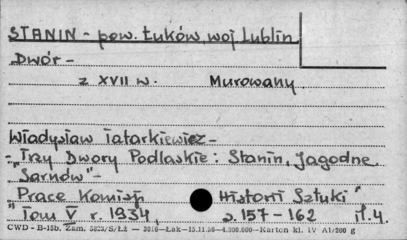 STANIN - pow. Łuków, woj Lublin
Dwór -
z XVII w. Murowany
Władysław Tatarkiewicz -
- "Trzy Dwory Podlaskie: Stanin, Jagodne
Sarnów" -
Prace Komisji Historii Sztuki"
"Tom V r. 1934, s. 157-162 il. 4.
CWD - B-15b. Zam. 5823/S/Lż — 3016 — Łak — 15.11.56 — 4.300.000 — Karton kl. IV A1/200 g